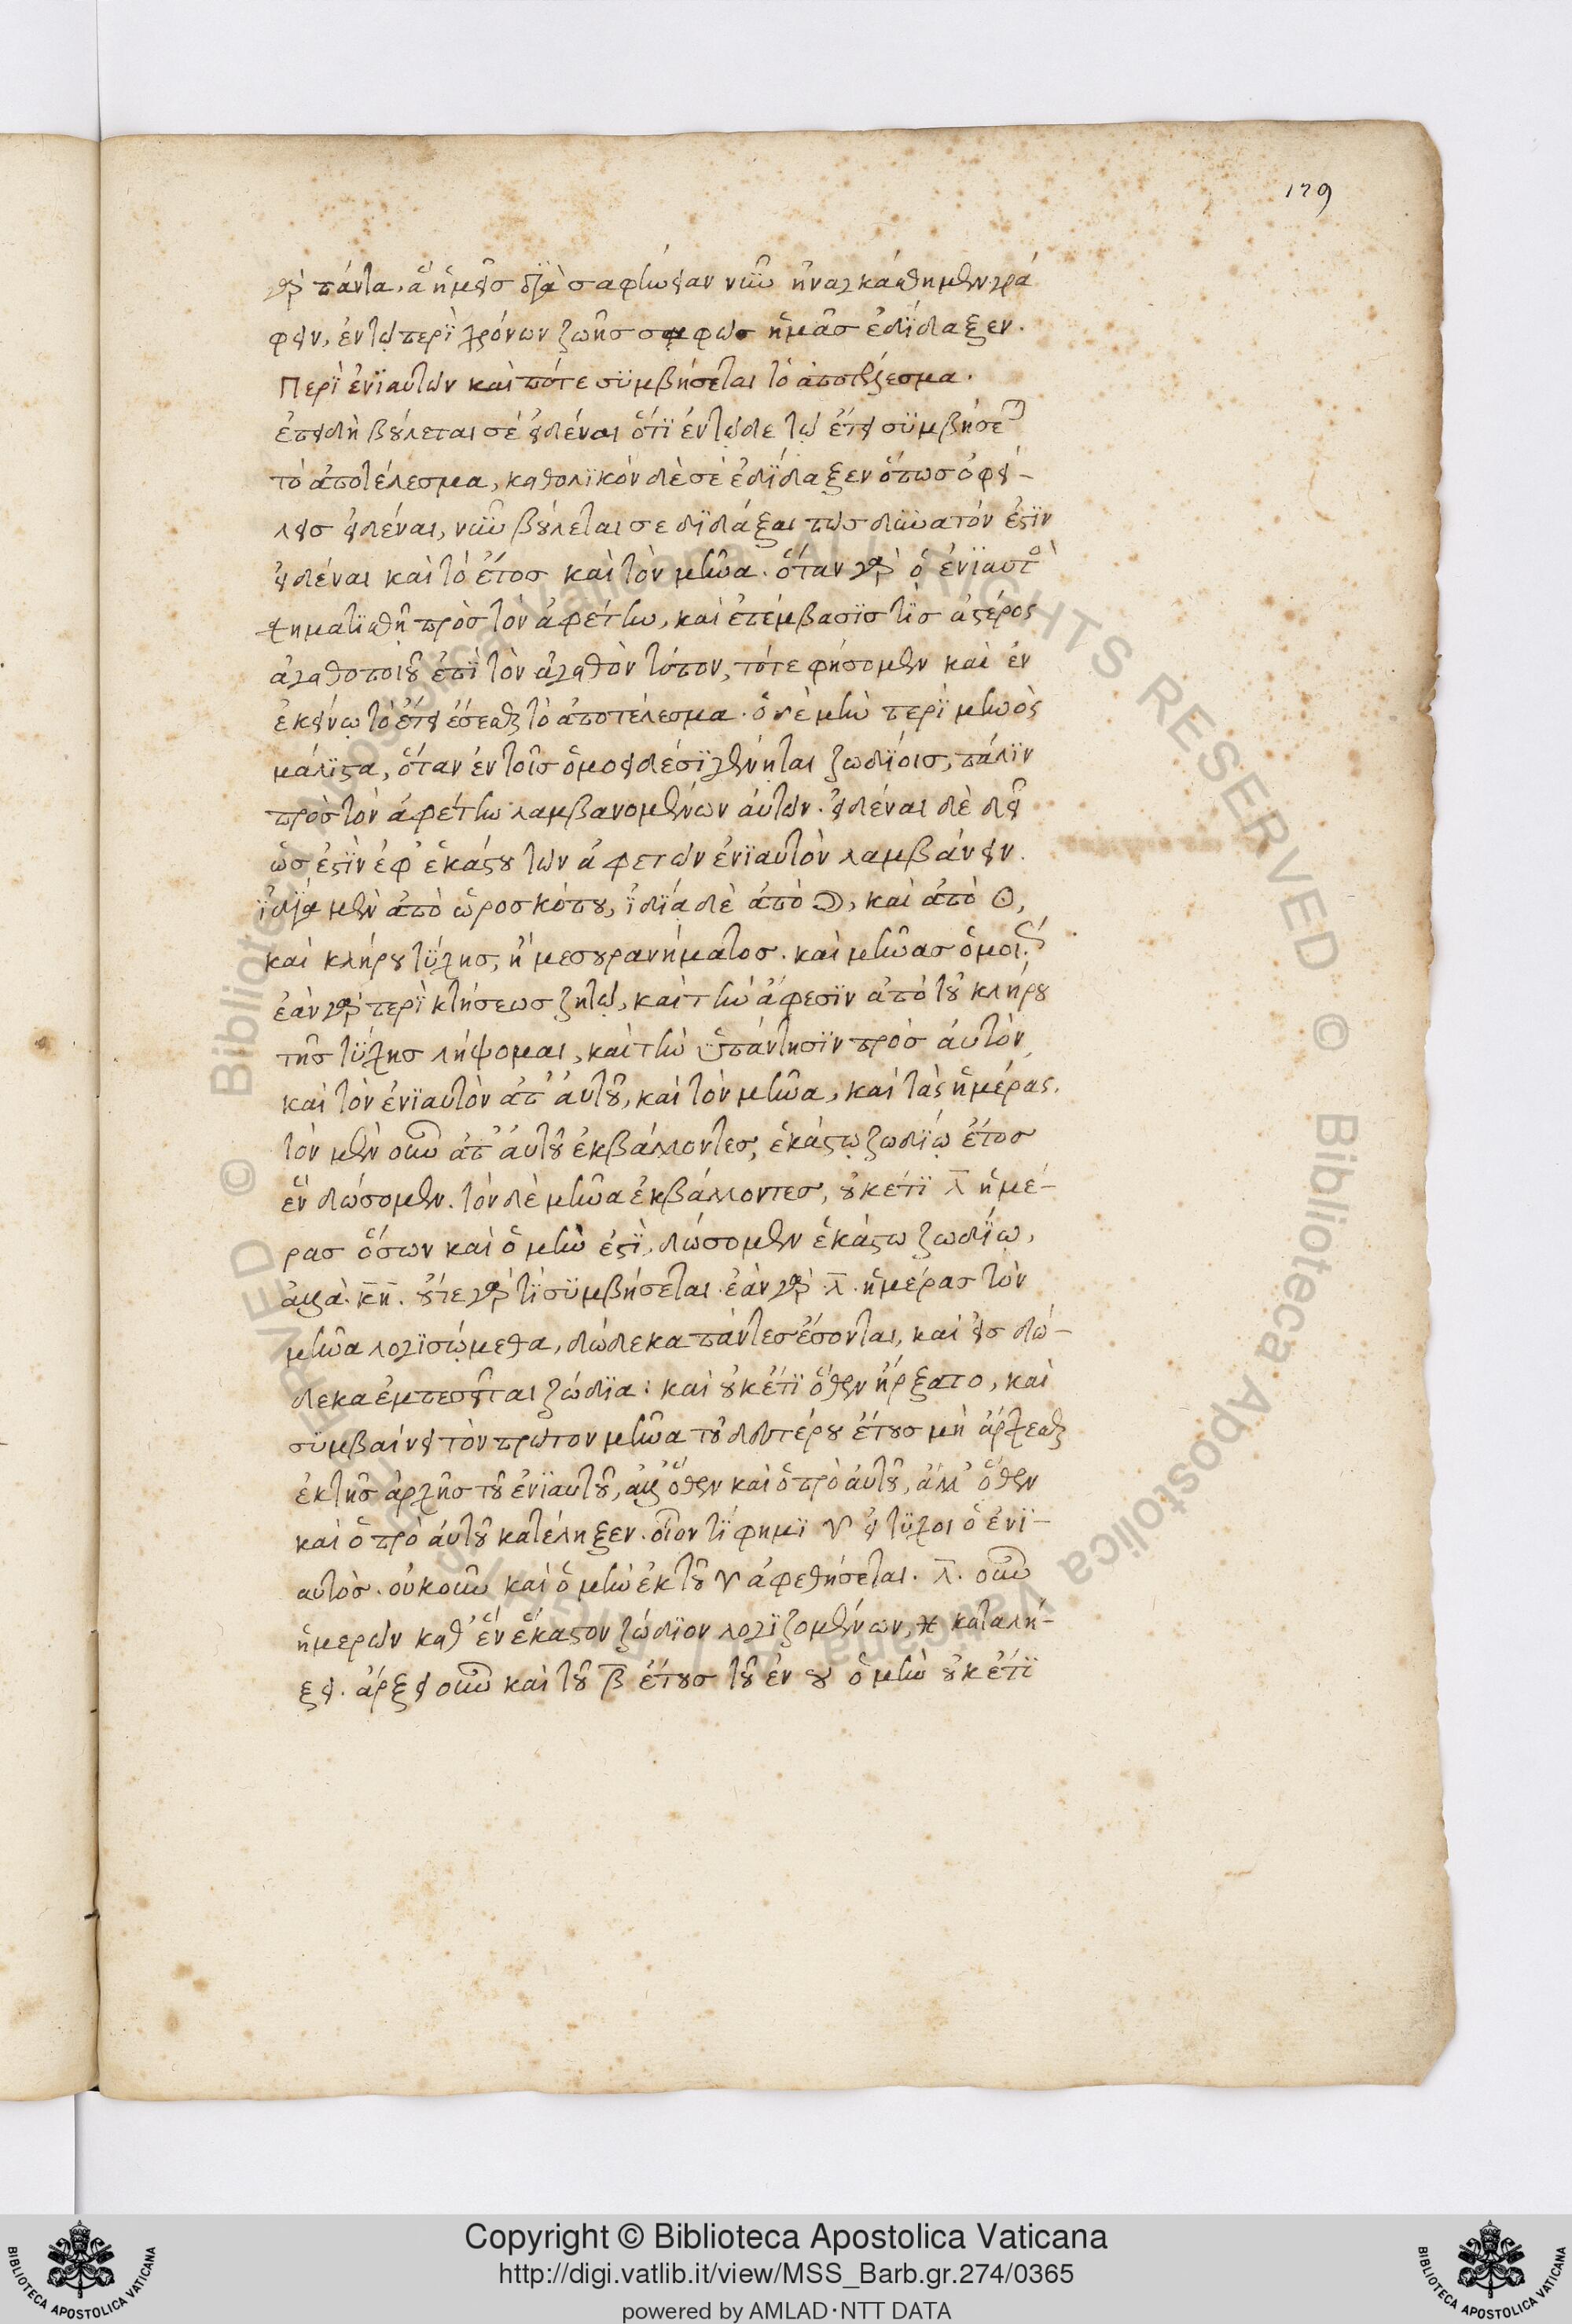 179
γὰρ πάντα, ἃ ἡμεῖς διὰ σαφήνειαν νῦν ἠναγκάσθημεν γρά
φειν, ἐν τῷ περὶ χρόνων ζωῆς σαφῶς ἡμᾶς ἐδίδαξεν.
Περὶ ἐνιαυτῶν καὶ πότε συμβήσεται τὸ ἀποτέλεσμα.
ἐπειδὴ βούλεται σὲ εἰδέναι ὅτι ἐν τῷδε τῷ ἔτει συμβήσεται
τὸ ἀποτέλεσμα, καθολικὸν δὲ σὲ ἐδίδαξεν ὅπως ὀφεί-
λεις εἰδέναι, νῦν βούλεται σε διδάξαι πῶς δυνατόν ἐστὶν
εἰδέναι καὶ τὸ ἔτος καὶ τὸν μῆνα. ὅταν γὰρ ὁ ἐνιαυτὸς
σχηματισθῇ πρὸς τὸν ἀφέτην, καὶ ἐπέμβασις τὶς ἀστέρος
ἀγαθοποιοῦ ἐπὶ τὸν ἀγαθὸν τόπον, τότε φήσομεν καὶ ἐν
ἐκείνῳ τὸ ἔτει ἔσεσθαι τὸ ἀποτέλεσμα. ὁ δὲ μὴν περὶ μηνὸς
μάλιστα, ὅταν ἐν τοῖς ὁμοειδέσι γένηται ζωδίοις, πάλιν
πρὸς τὸν ἀφέτην λαμβανομένων αὐτῶν. εἰδέναι δὲ δεῖ
ὡς ἐστὶν ἐφ' ἑκάστου τῶν ἀφετῶν ἐνιαυτὸν λαμβάνειν.
ἰδίᾳ μὲν ἀπὸ ὡροσκόπου, ἰδίᾳ δὲ ἀπὸ ☽, καὶ ἀπὸ ☉,
καὶ κλήρου τύχης, ἢ μεσουρανήματος. καὶ μῆνας ὁμοίως.
ἐὰν γὰρ περὶ κτήσεως ζητῶ, καὶ τὴν ἄφεσιν ἀπὸ τοῦ κλήρου
τῆς τύχης λήψομαι, καὶ τὴν ὑπάντησιν πρὸς αὐτὸν,
καὶ τὸν ἐνιαυτὸν ἀπ' αὐτοῦ, καὶ τὸν μῆνα, καὶ τὰς ἡμέρας.
τὸν μὲν οὖν ἀπ' αὐτοῦ ἐκβάλλοντες, ἑκάστῳ ζωδίῳ ἔτος
ἓν δώσομεν. τὸν δὲ μῆνα ἐκβάλλοντες, οὐκέτι λ̅ ἡμέ-
ρας ὅσων καὶ ὁ μὴν ἐστὶ, δώσομεν ἑκάστω ζωδίῳ,
ἀλλὰ. κ̅η̅. οὔτε γὰρ τὶ συμβήσεται. ἐὰν γὰρ .λ̅. ἡμέρας τὸν
μῆνα λογισώμεθα, δώδεκα πάντες ἔσονται, καὶ εἰς δώ-
δεκα ἐμπεσεῖται ζώδια: καὶ οὐκέτι ὅθεν ἤρξατο, καὶ
συμβαίνει τὸν πρῶτον μῆνα τοῦ δευτέρου ἔτους μὴ ἄρχεσθαι
ἐκ τῆς ἀρχῆς τοῦ ἐνιαυτοῦ, ἀλλ' ὅθεν καὶ ὁ πρὸ αὐτοῦ, ἀλλ' ὅθεν
καὶ ὁ πρὸ αὐτοῦ κατέληξεν. οἷον τί φημι ♈ εἰ τύχοι ὁ ἐνι-
αυτὸς. οὐκοῦν καὶ ὁ μὴν ἐκ τοῦ ♈ ἀφεθήσεται. λ̅. οὖν
ἡμερῶν καθ' ἓν ἕκαστον ζώδιον λογιζομένων, ♓ καταλή-
ξει. ἄρξει οὖν καὶ τοῦ β̅ ἔτους τοῦ ἐν ♉ ὁ μὴν οὐκέτι
Copyright © Biblioteca Apostolica Vaticana
http://digi.vatlib.it/view/MSS_Barb.gr.274/0365
powered by AMLAD·NTT DATA